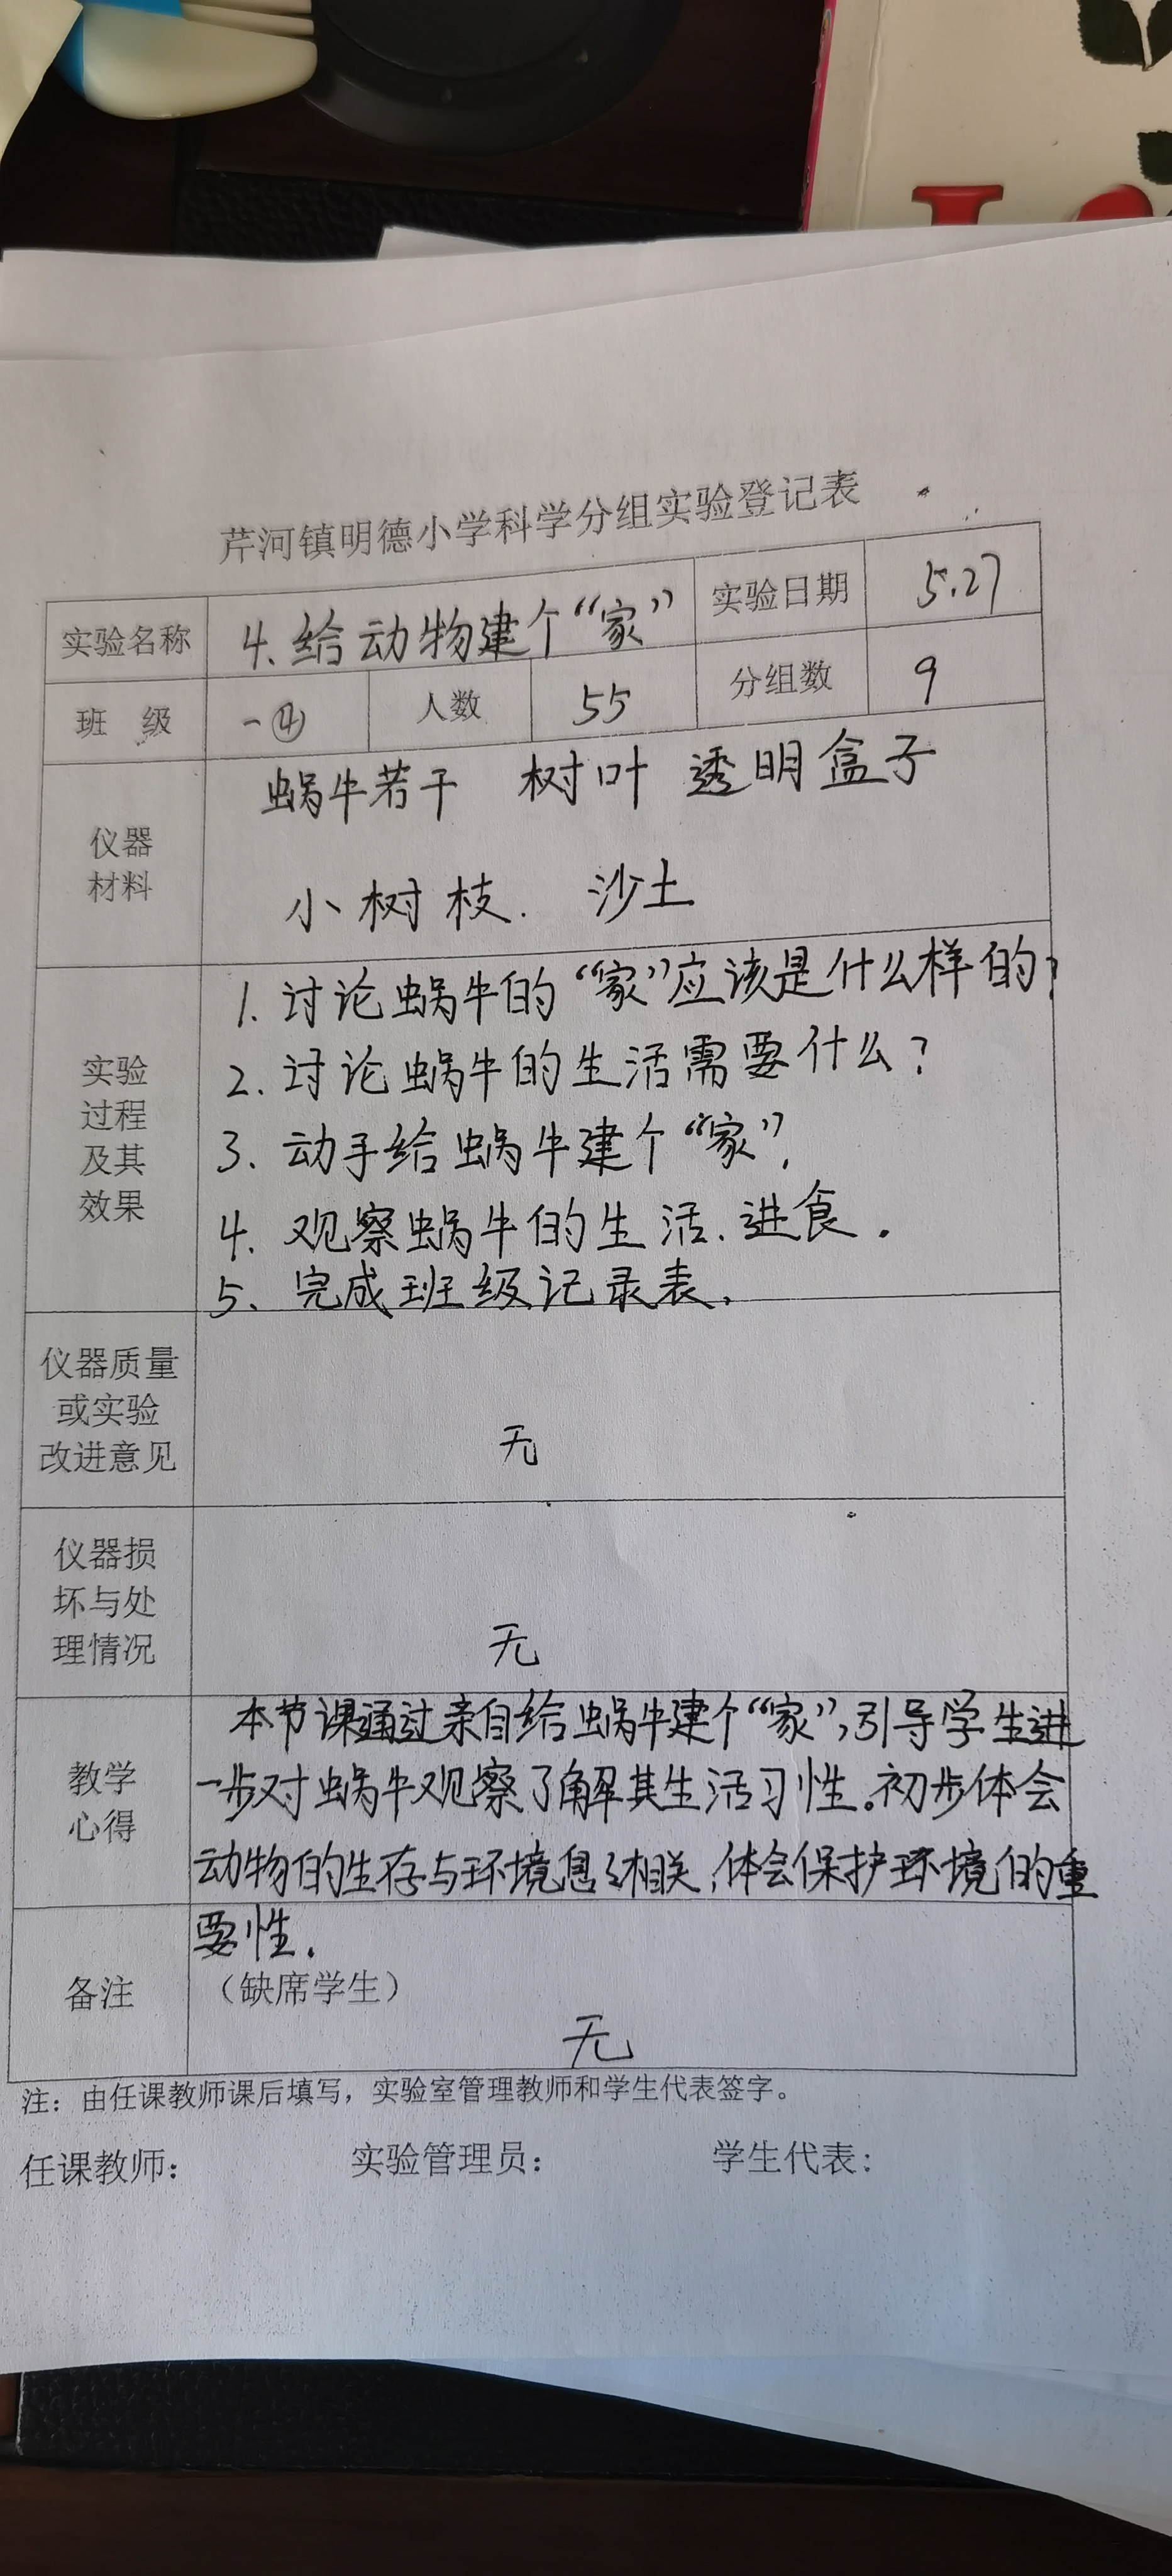 芹河镇明德小学科学分组实验登记表
实验名称 4.给动物建个“家” 实验日期 5.27
班 级 一④ 人数 55 分组数 9
仪器
材料
蜗牛若干 树叶 透明盒子
小树枝. 沙土
实验
过程
及其
效果
1. 讨论蜗牛的“家”应该是什么样的?
2. 讨论蜗牛的生活需要什么?
3、动手给蜗牛建个“家”.
4. 观察蜗牛的生活、进食.
5、完成班级记录表.
仪器质量
或实验
改进意见
无
仪器损
坏与处
理情况
无
教学
心得
本节课通过亲自给蜗牛建个“家”,引导学生进
一步对蜗牛观察了解其生活习性。初步体会
动物的生存与环境息息相关,体会保护环境的重
要性.
备注
（缺席学生）
无
注：由任课教师课后填写，实验室管理教师和学生代表签字。
任课教师： 实验管理员： 学生代表：